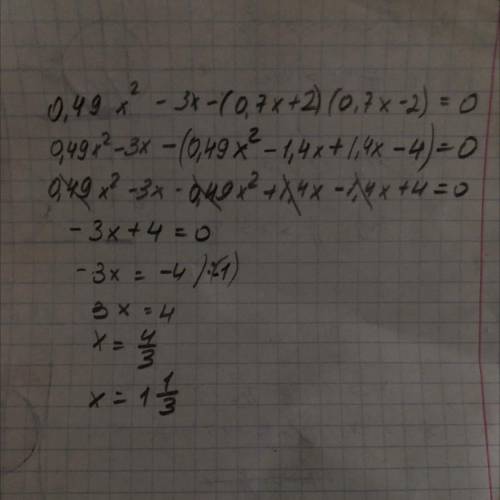 0,49 x² - 3x - (0,7x+2)(0,7x-2) = 0
0,49x² - 3x - (0,49x² - 1,4x + 1,4x - 4) = 0
0,49x² - 3x - 0,49x² + 1,4x - 1,4x + 4 = 0
- 3x + 4 = 0
- 3x = -4 /·(-1)
3x = 4
x = 4/3
x = 1 1/3